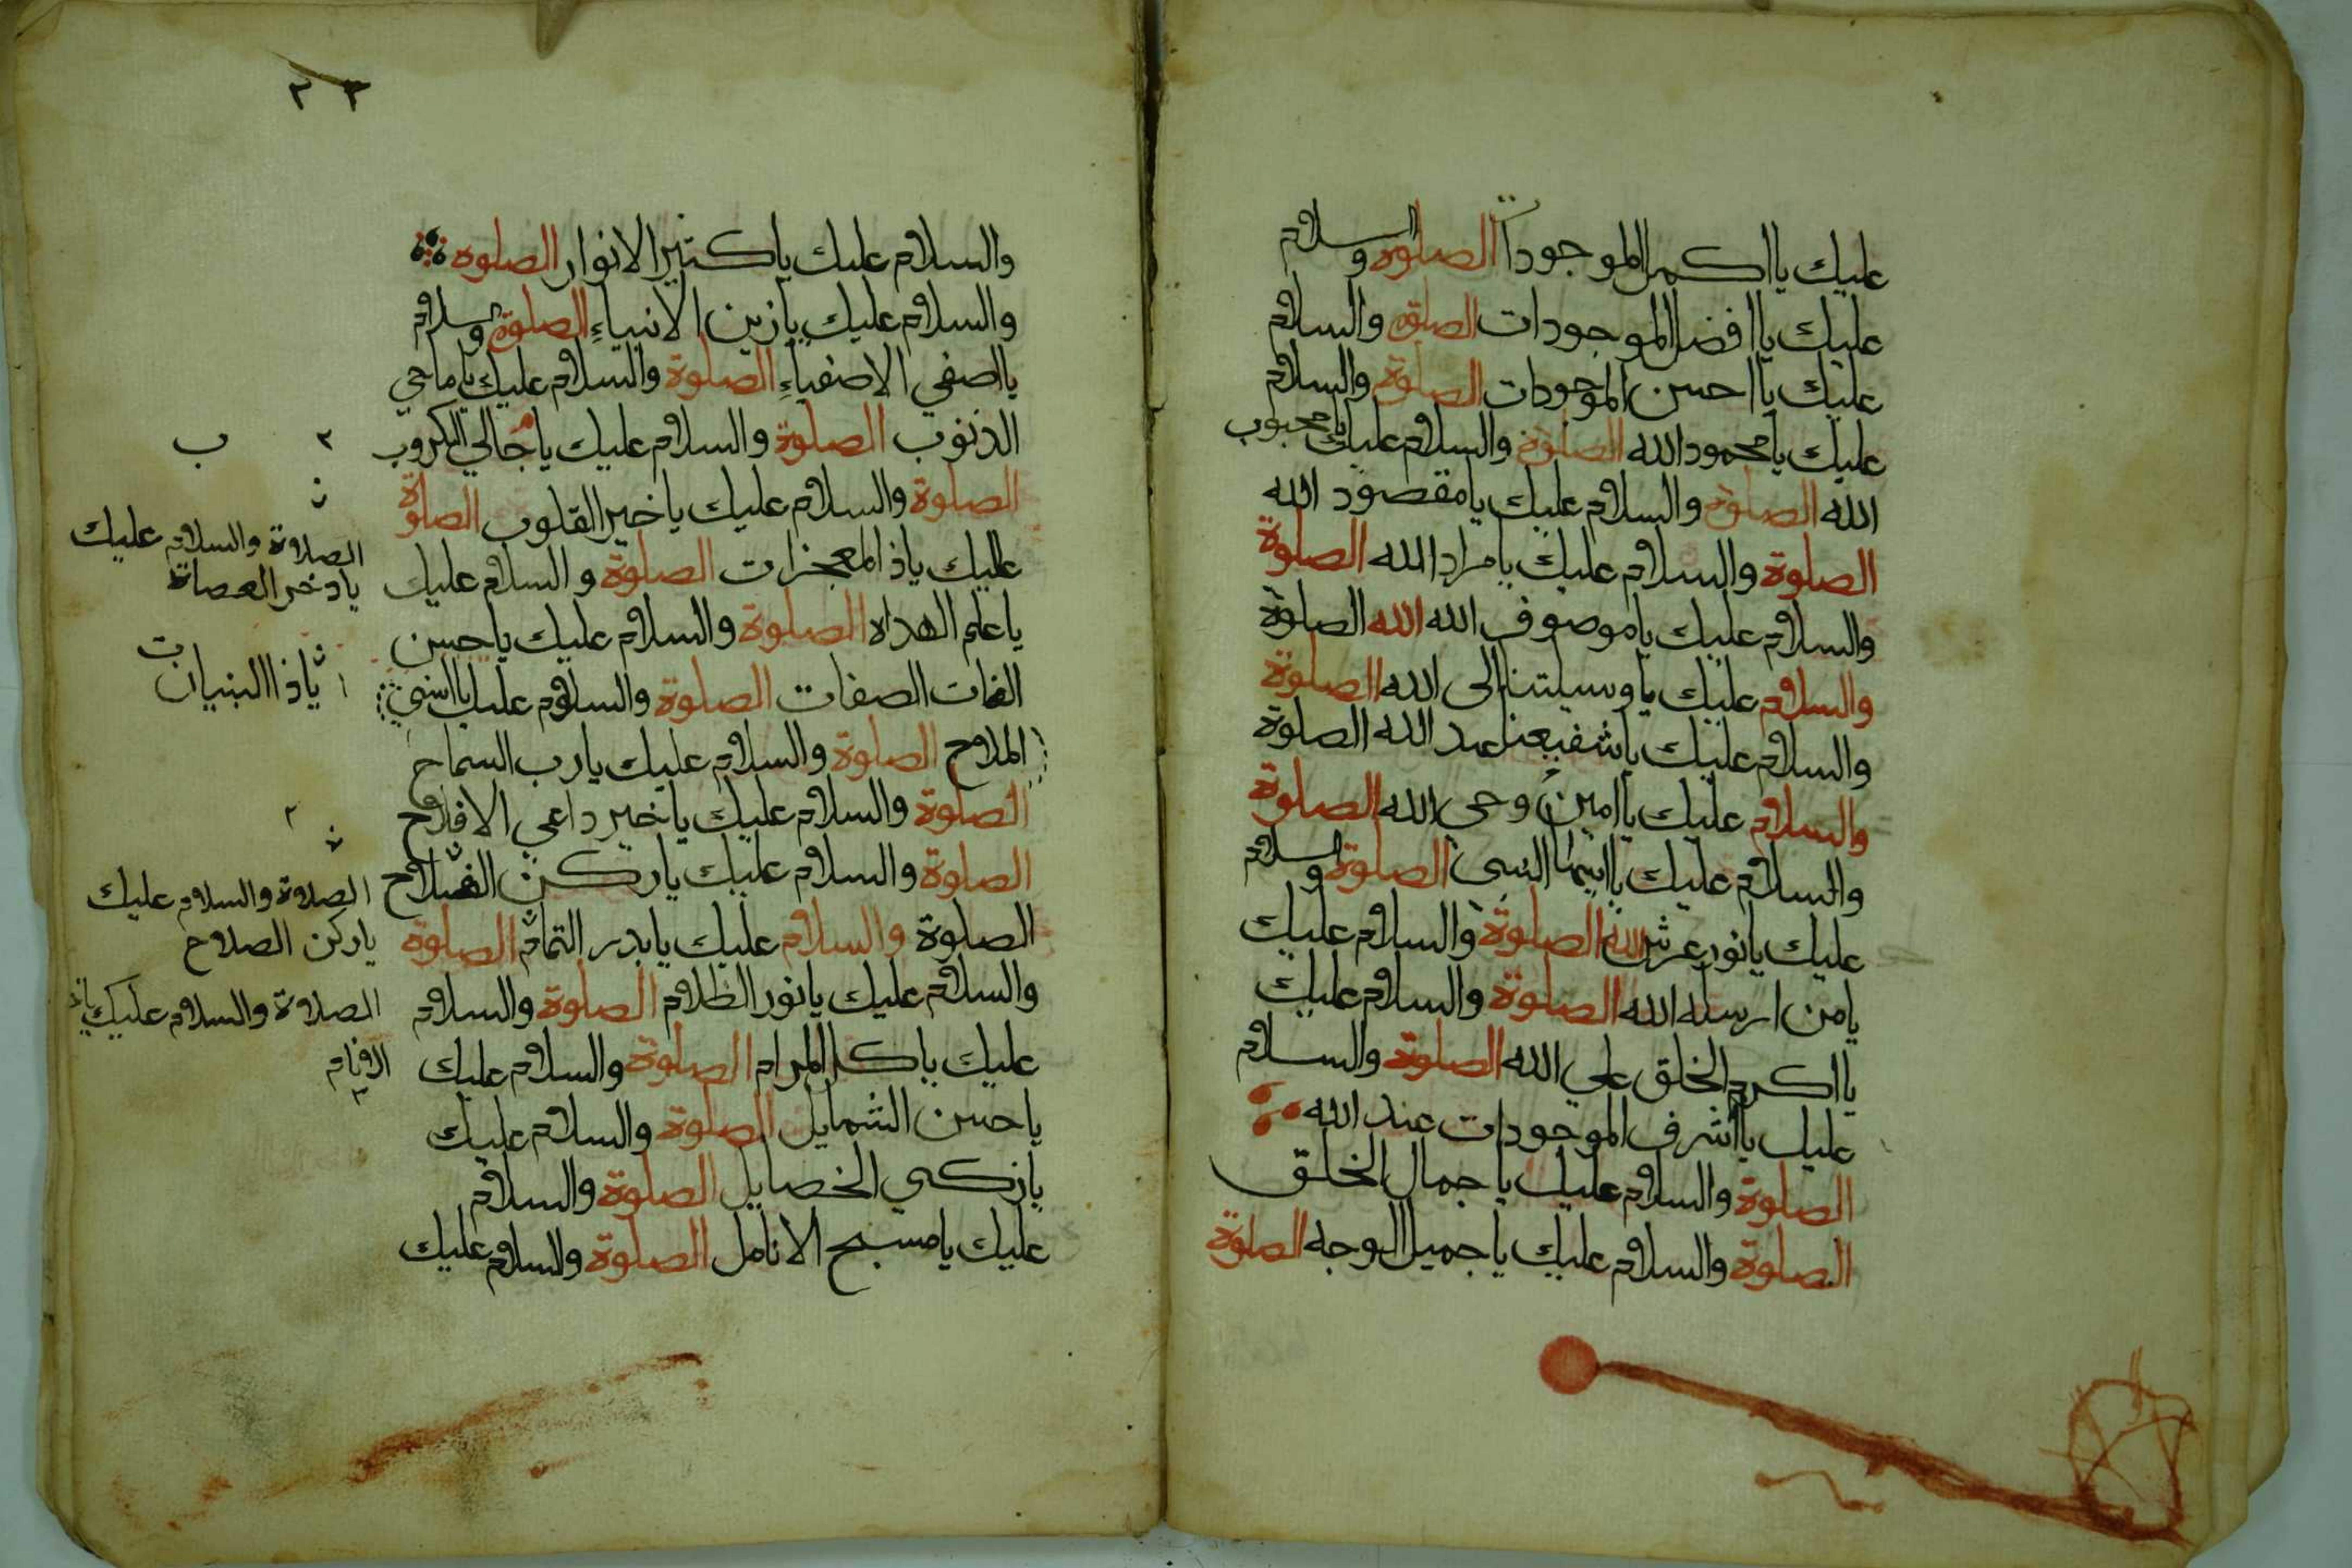 عليك يا اكمل الموجودا الصلوه والسلام
عليك يا افضل الموجودات الصلوة والسلام
عليك يا احسن الموجودات الصلوة والسلام
عليك يا محمود الله الصلوة والسلام عليك يا محبوب
الله الصلوة والسلام عليك يا مقصود الله
الصلوة والسلام عليك يا مراد الله الصلوة
والسلام عليك يا موصوف الله الله الصلوة
والسلام عليك يا وسيلتنا الى الله الصلوة
والسلام عليك يا شفيعنا عند الله الصلوة
والسلام عليك يا امين وحي الله الصلوة
والسلام عليك يا ايها النبي الصلوة والسلام
عليك يا نور عرش الله الصلوة والسلام عليك
يا من ارسله الله الصلوة والسلام عليك
يا اكرم الخلق علي الله الصلوة والسلام
عليك يا اشرف الموجودات عند الله
الصلوة والسلام عليك يا جمال الخلق
الصلوة والسلام عليك يا جميل الوجه الصلوة
٢٣
والسلام عليك يا كثير الانوار الصلوه
والسلام عليك يا زين الانبياءِ الصلوة والسلام
يا اصفي الاصفياءِ الصلوة والسلام عليك يا ماحي
الذنوب الصلوة والسلام عليك يا جالي الكروب
الصلوة والسلام عليك يا خير القلوب الصلوة
عليك يا ذا المعجزات الصلوة والسلام عليك
يا علم الهداه الصلوة والسلام عليك يا حسن
الصفات الصلوة والسلام عليك يا اسني
الملاح الصلوة والسلام عليك يا رب السماح
الصلوة والسلام عليك يا خير داعي الافلاح
الصلوة والسلام عليك يا ركن
الصلوة والسلام عليك يا بدر التمام الصلوة
والسلام عليك يا نور الظلام الصلوة والسلام
عليك يا كل المرام الصلوة والسلام عليك
يا حسن الشمايل الصلوة والسلام عليك
يا زكي الخصايل الصلوة والسلام
عليك يا مسبح الانامل الصلوة والسلام عليك
ب ٢
الصلاوة والسلام عليك
يا ذخر العصاة
يا ذا البنيان
الصلاوة والسلام عليك
يا ركن الصلاح
الصلاوة والسلام عليك